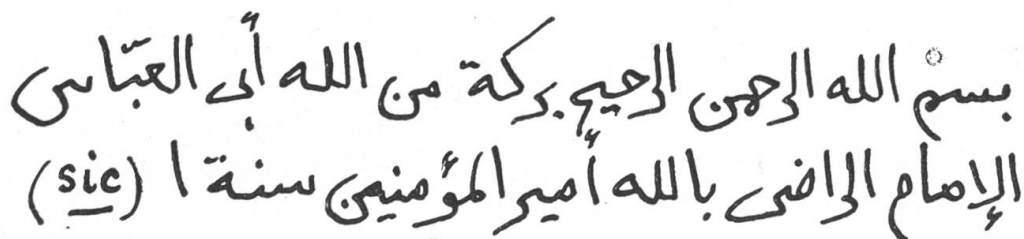 بسم الله الرحمن الرحيم بركة من الله أبى العبّاس
الإمام الراضى بالله أمير المؤمنين سنة ا (sic)